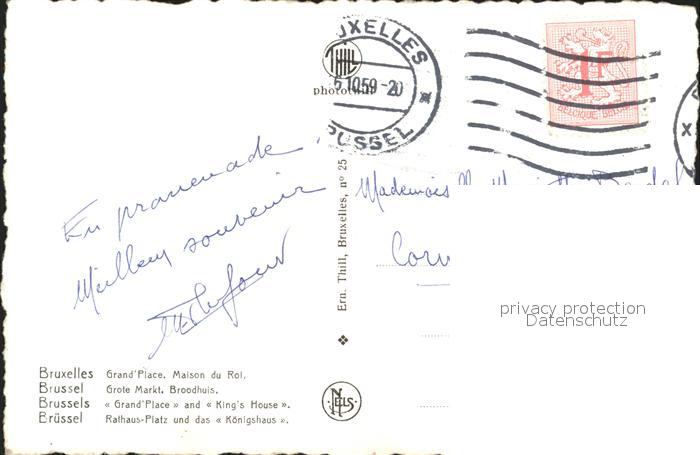 BRUXELLES
5.10.59-20
BRUSSEL
THILL
1F
BELGIQUE-BELGIË
En promenade,
Meilleur souvenir
Ern. Thill, Bruxelles, n° 25
Mademois
privacy protection
Datenschutz
Bruxelles Grand'Place. Maison du Roi.
Brussel Grote Markt. Broodhuis.
Brussels « Grand'Place » and « King's House ».
Brüssel Rathaus-Platz und das « Königshaus ».
NELS